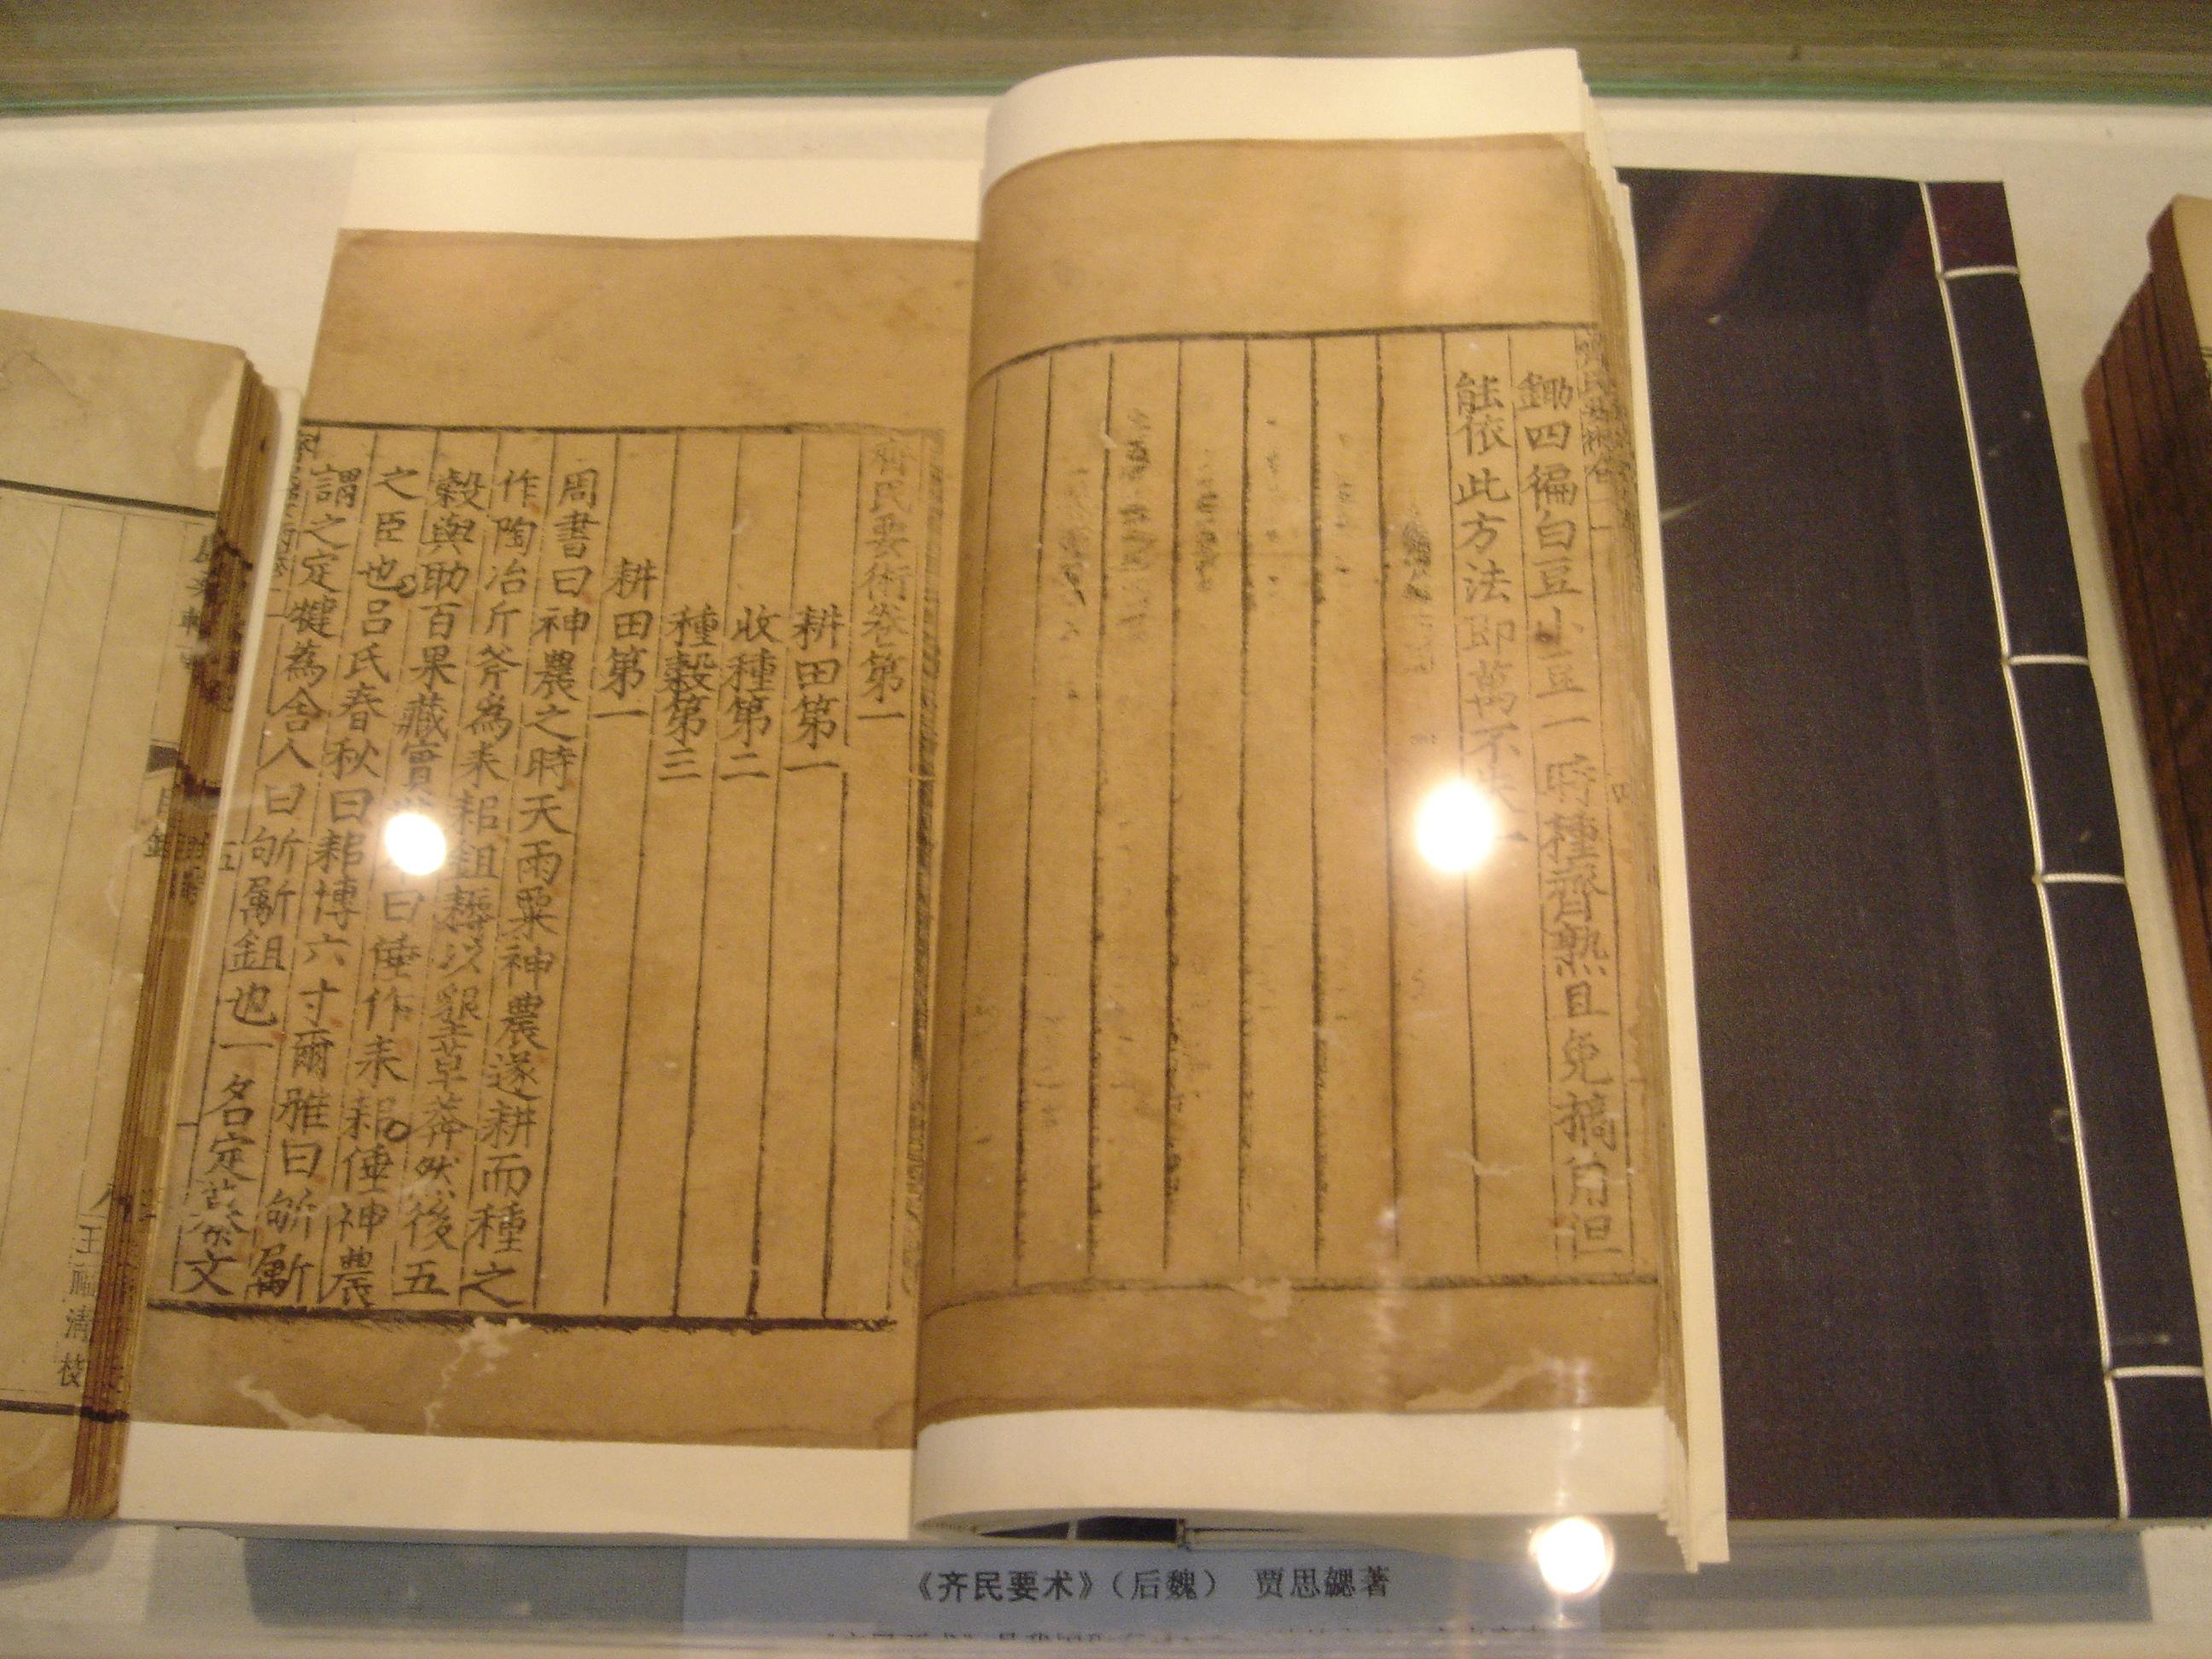 鋤四徧白豆小豆一時種齊熟且免摘角但
能依此方法即萬不失一
齊民要術卷第一
耕田第一
收種第二
種穀第三
耕田第一
周書曰神農之時天雨粟神農遂耕而種之
作陶冶斤斧為耒耜鉏耨以墾草莽然後五
穀與助百果藏實 曰倕作耒耜倕神農
之臣也呂氏春秋曰耜博六寸爾雅曰斪斸
謂之定犍為舍人曰斪斸鉏也一名定纂文
王福清校
《齐民要术》(后魏) 贾思勰著